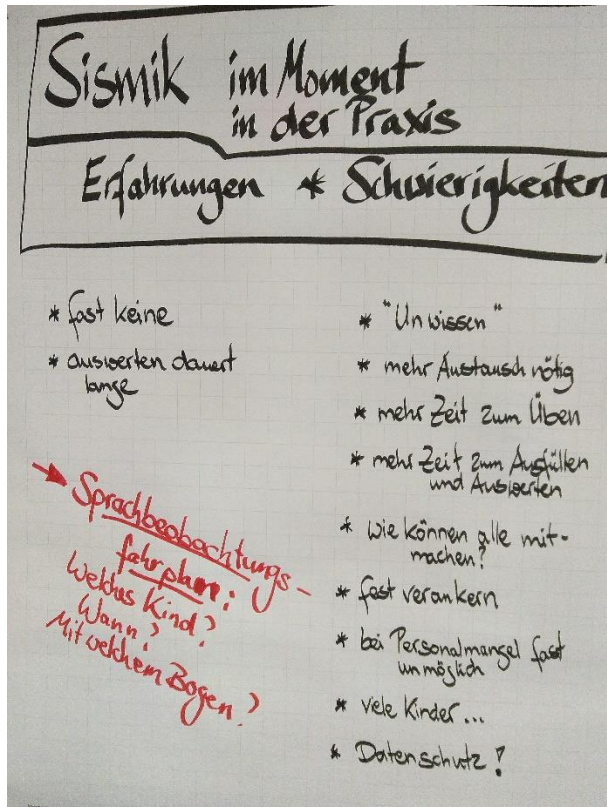 Sismik im Moment
in der Praxis
Erfahrungen * Schwierigkeiten
* fast keine
* auswerten dauert
lange
→ Sprachbeobachtungs-
fahrplan:
Welches Kind?
Wann?
Mit welchem Bogen?
* "Unwissen"
* mehr Austausch nötig
* mehr Zeit zum Üben
* mehr Zeit zum Ausfüllen
und Auswerten
* wie können alle mit-
machen?
* fest verankern
* bei Personalmangel fast
unmöglich
* viele Kinder...
* Datenschutz!